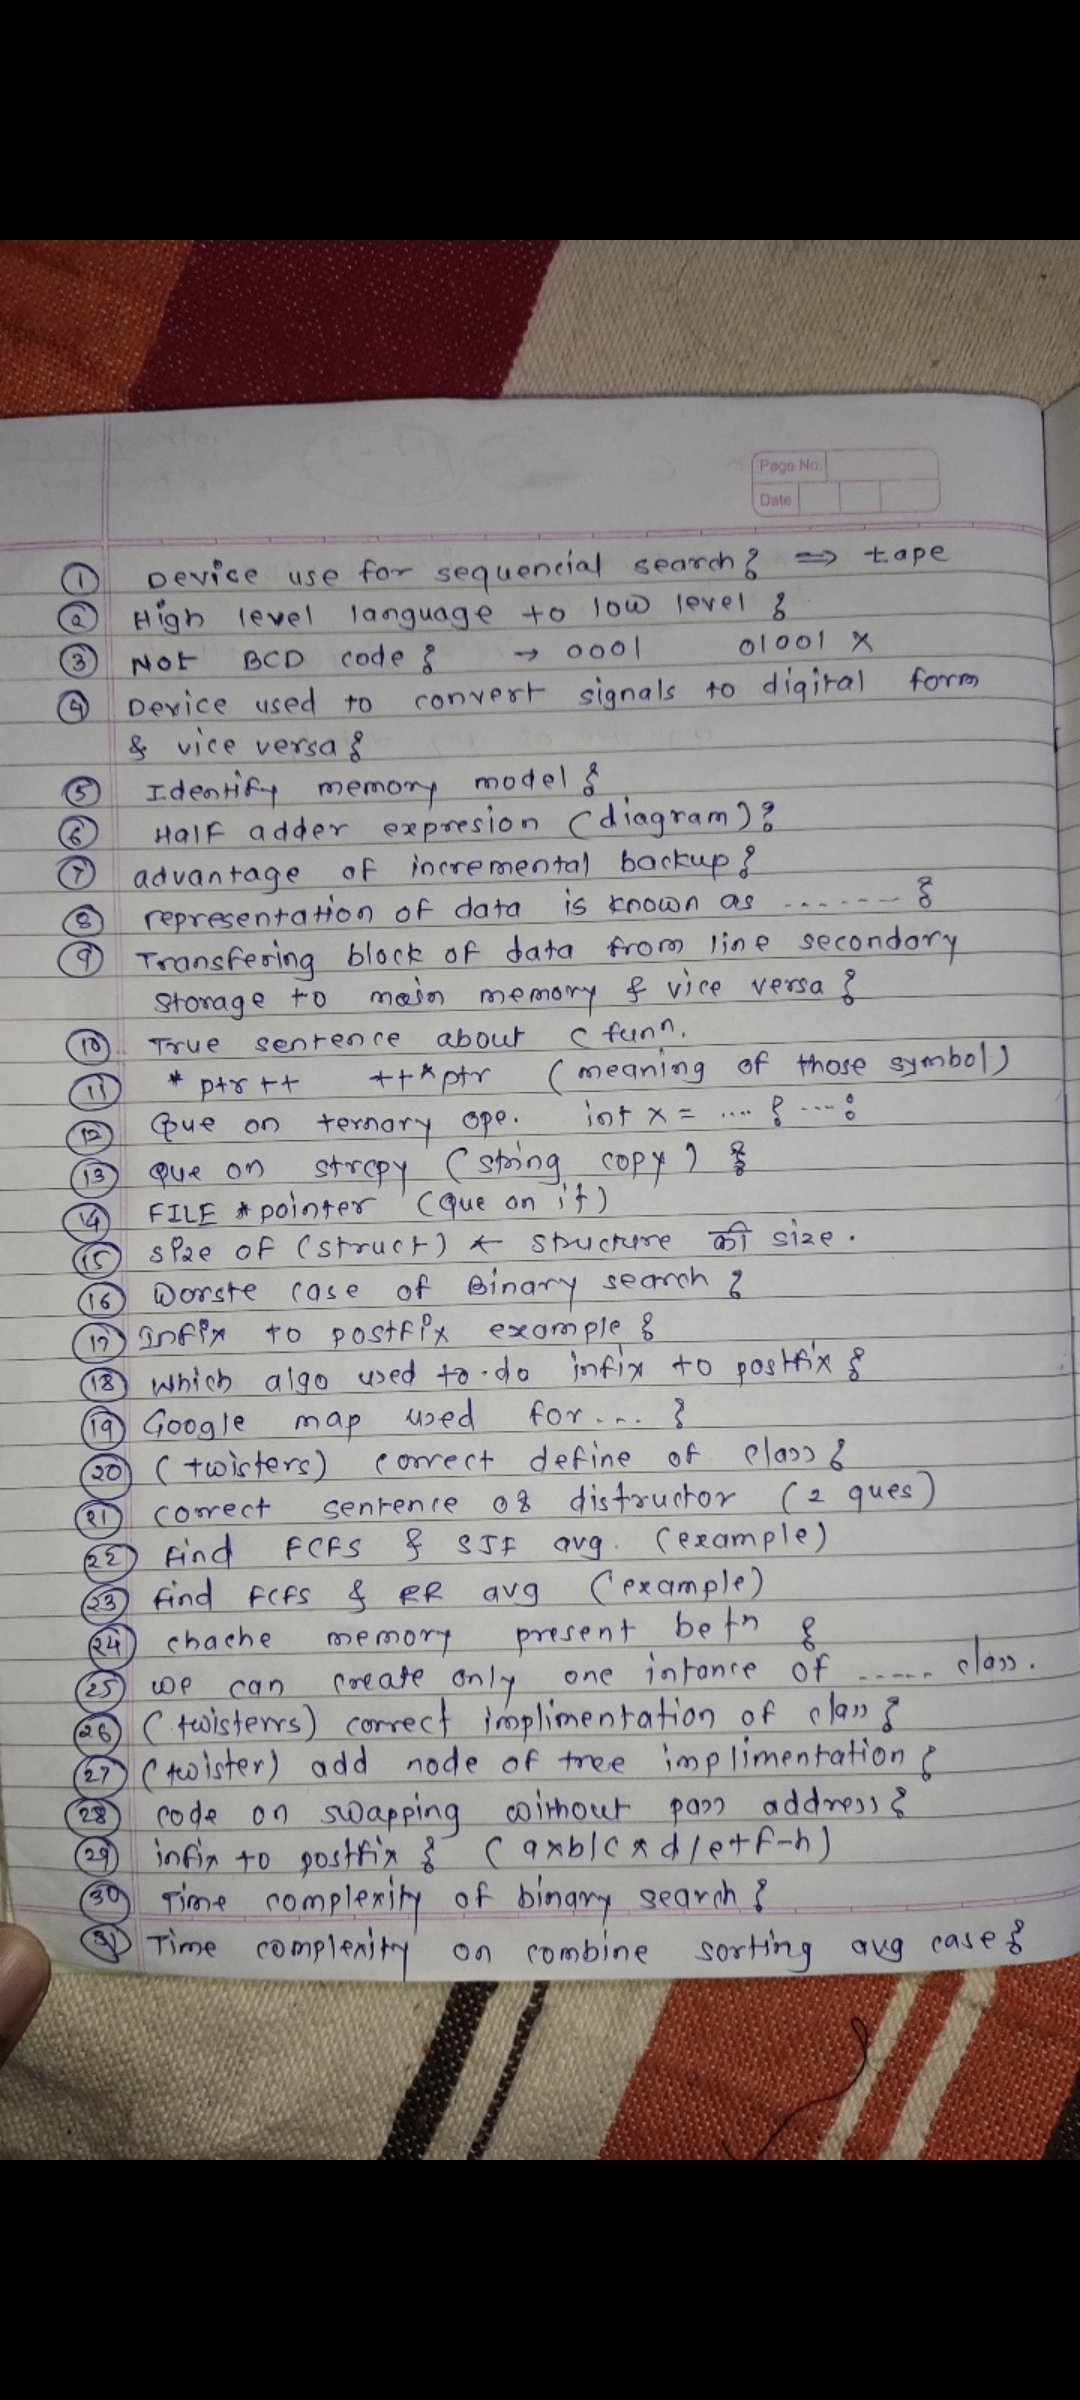 Page No.
Date
① Device use for sequencial search? ⇒ tape
② High level language to low level ?
③ Not BCD code ? → 0001 01001 ×
④ Device used to convert signals to digital form
& vice versa ?
⑤ Identify memory model ?
⑥ Half adder expresion (diagram) ?
⑦ advantage of incremental backup ?
⑧ representation of data is known as ------- ?
⑨ Transfering block of data from line secondory
storage to main memory & vice versa ?
⑩ True sentence about C funn.
⑪ *ptr++ ++*ptr (meaning of those symbol)
⑫ Que on ternary ope. int x = .... ? ---- :
⑬ Que on strcpy (string copy) ?
⑭ FILE *pointer (que on it)
⑮ size of (struct) ← structure की size.
⑯ Worste case of Binary search ?
⑰ Infix to postfix example ?
⑱ which algo used to do infix to postfix ?
⑲ Google map used for... ?
⑳ (twisters) correct define of class ?
㉑ correct sentence of distructor (2 ques)
㉒ find FCFS & SJF avg. (example)
㉓ find FCFS & RR avg (example)
㉔ chache memory present betn ?
㉕ we can create only one intance of ----- class.
㉖ (twisterrs) correct implimentation of class ?
㉗ (twister) add node of tree implimentation ?
㉘ code on swapping without pass address ?
㉙ infix to postfix ? (a×b/c*d/e+f-h)
㉚ Time complexity of binary search ?
㉛ Time complexity on combine sorting avg case ?